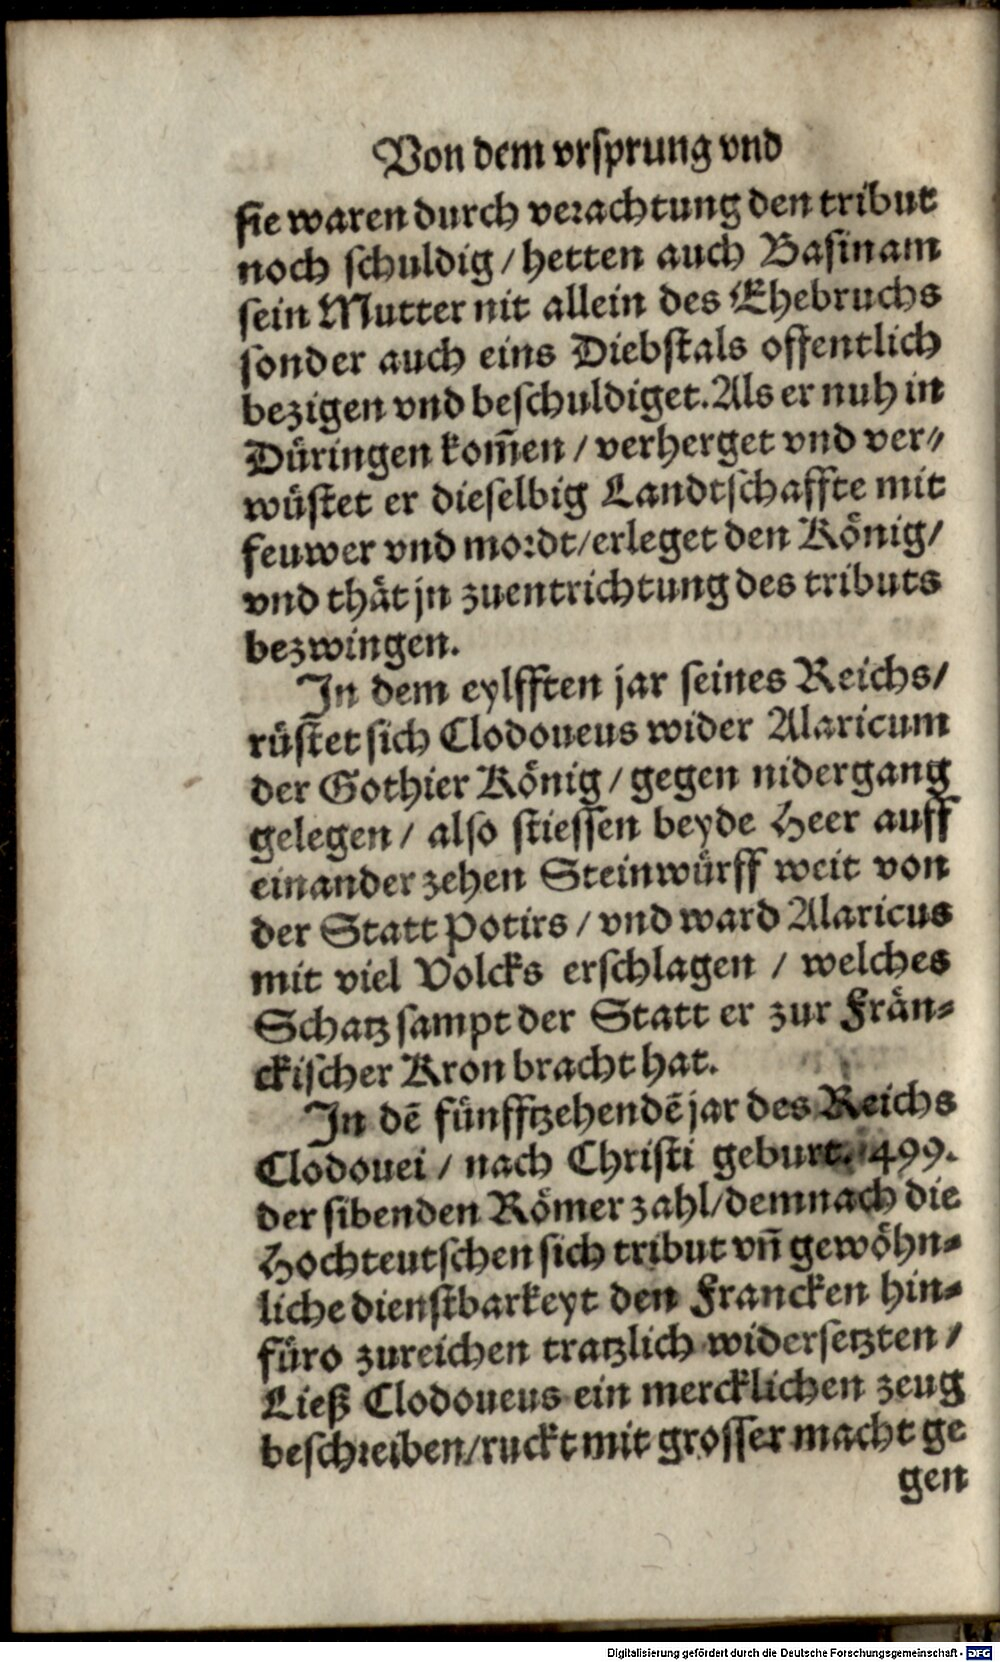 Von dem vrsprung vnd
sie waren durch verachtung den tribut
noch schuldig / hetten auch Basinam
sein Mutter nit allein des Ehebruchs
sonder auch eins Diebstals offentlich
bezigen vnd beschuldiget. Als er nuh in
Düringen kom̄en / verherget vnd ver-
wüstet er dieselbig Landtschaffte mit
feuwer vnd mordt / erleget den König /
vnd thät jn zuentrichtung des tributs
bezwingen.
In dem eylfften jar seines Reichs /
rüstet sich Clodoueus wider Alaricum
der Gothier König / gegen nidergang
gelegen / also stiessen beyde Heer auff
einander zehen Steinwürff weit von
der Statt Potirs / vnd ward Alaricus
mit viel Volcks erschlagen / welches
Schatz sampt der Statt er zur Frän-
ckischer Kron bracht hat.
In dē fünfftzehendē jar des Reichs
Clodouei / nach Christi geburt. 499.
der sibenden Römer zahl / demnach die
Hochteutschen sich tribut vn̄ gewöhn-
liche dienstbarkeyt den Francken hin-
füro zureichen tratzlich widersetzten /
Ließ Clodoueus ein mercklichen zeug
beschreiben / ruckt mit grosser macht ge
gen
Digitalisierung gefördert durch die Deutsche Forschungsgemeinschaft - DFG